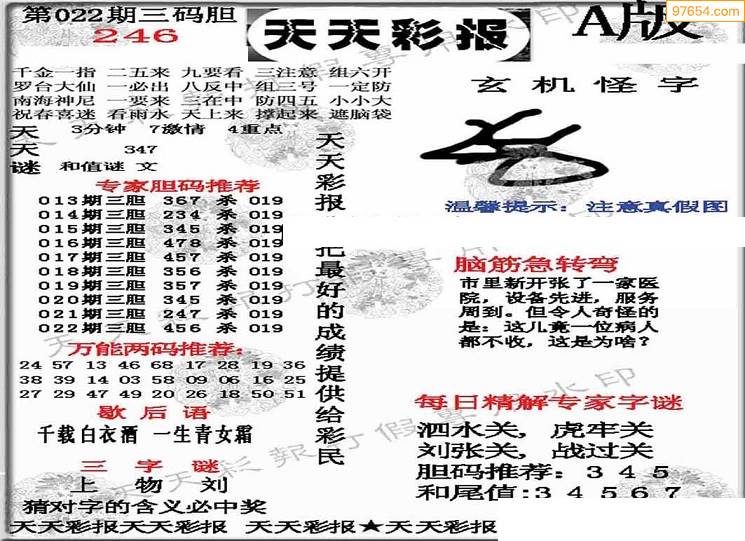 第022期三码胆
246
天天彩报
A版
97654.com
千金一指 二五来 九要看 三注意 组六开
罗台大仙 一必出 八反中 组三号 一定防
南海神尼 一要来 三在中 防四五 小小大
祝春喜迷 看雨水 天上来 撑起来 遮脑袋
天 3分钟 7激情 4重点
天 347
谜 和值谜 文
专家胆码推荐
013期三胆 367 杀 019
014期三胆 234 杀 019
015期三胆 345 杀 019
016期三胆 478 杀 019
017期三胆 457 杀 019
018期三胆 356 杀 019
019期三胆 357 杀 019
020期三胆 345 杀 019
021期三胆 247 杀 019
022期三胆 456 杀 019
万能两码推荐:
24 57 13 46 68 17 28 19 36
38 39 14 03 58 09 06 16 25
27 29 47 49 20 26 18 50 51
歇后语
千载白衣酒 一生青女霜
三字谜
上 物 刘
猜对字的含义必中奖
天天彩报
把最好的成绩提供给彩民
玄机怪字
温馨提示: 注意真假图
脑筋急转弯
市里新开张了一家医
院,设备先进,服务
周到。但令人奇怪的
是:这儿竟一位病人
都不收,这是为啥?
每日精解专家字谜
泗水关,虎牢关
刘张关,战过关
胆码推荐:345
和尾值:34567
天天彩报天天彩报 天天彩报★天天彩报